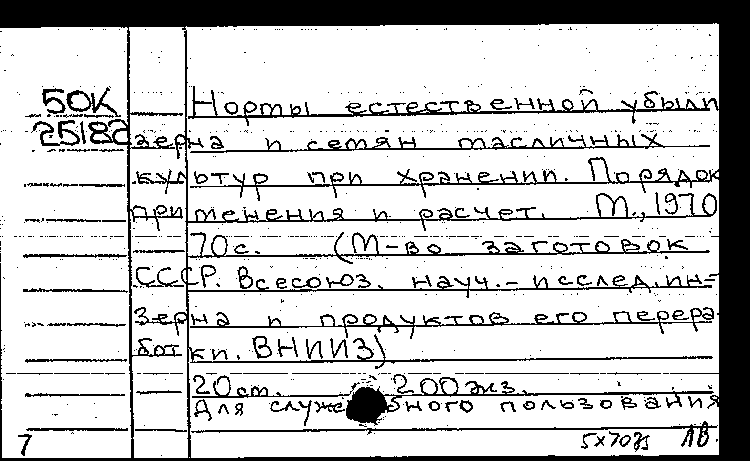 50К Нормы естественной убыли
25182 зерна и семян масличных
культур при хранении. Порядок
применения и расчет. М., 1970
70с. (М-во заготовок
СССР. Всесоюз. науч.-исслед. ин-
зерна и продуктов его перера-
ботки. ВНИИЗ)
20 ст. 200 экз.
Для служебного пользования
7